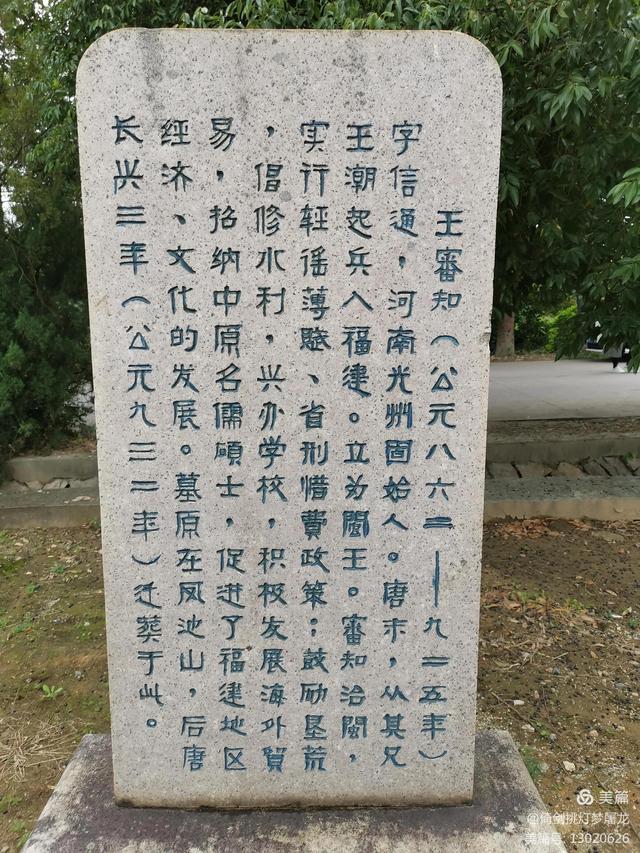 王審知（公元八六二——九二五年）
字信通，河南光州固始人。唐末，从其兄
王潮起兵入福建。立为閩王。審知治閩，
实行轻徭薄赋、省刑惜費政策；鼓励垦荒
，倡修水利，兴办学校，积极发展海外貿
易，招纳中原名儒碩士，促进了福建地区
经济、文化的发展。墓原在凤池山，后唐
长兴三年（公元九三二年）迁葬于此。
美篇
@倚剑挑灯梦屠龙
美篇号: 13020626